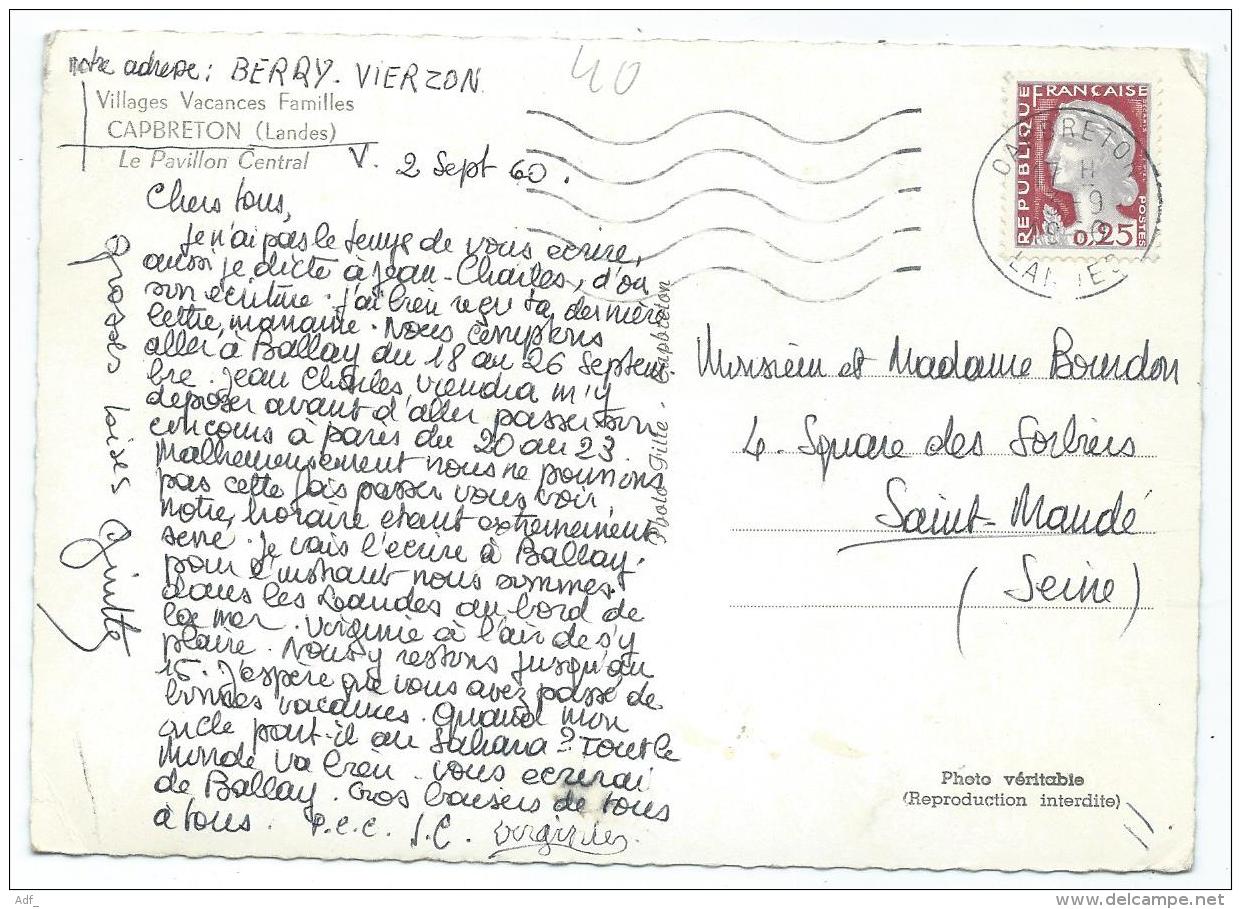 notre adresse : BERRY. VIERZON
40
Villages Vacances Familles
CAPBRETON (Landes)
Le Pavillon Central
V. 2 Sept 60.
Chers tous,
Je n'ai pas le temps de vous écrire,
aussi je dicte à Jean-Charles, d'où
son écriture. J'ai bien reçu ta dernière
lettre, maname. Nous comptons
aller à Ballay du 18 au 26 Septem
bre. Jean Charles viendra m'y
déposer avant d'aller passer son
concours à Paris du 20 au 23.
Malheureusement nous ne pourrons
pas cette fois passer vous voir,
notre horaire étant extrêmement
serré. Je vais t'écrire à Ballay.
pour l'instant nous sommes
dans les Landes au bord de
la mer. Virginie à l'air de s'y
plaire. Nous y restons jusqu'au
15. J'espère que vous avez passé de
bonnes vacances. Quand mon
oncle part-il au Sahara ? Tout le
monde va bien. Vous écrirai
de Ballay. Gros baisers de tous
à tous. P.C.C. J.C. Virginie.
grosses bises Ginette
Photo Tille - Capbreton
RÉPUBLIQUE FRANÇAISE
POSTES
0,25
CAPBRETON
LANDES
Monsieur et Madame Bourdon
4. Square des Sorbiers
Saint-Mandé
(Seine)
Photo véritable
(Reproduction interdite)
Adf_
www.delcampe.net